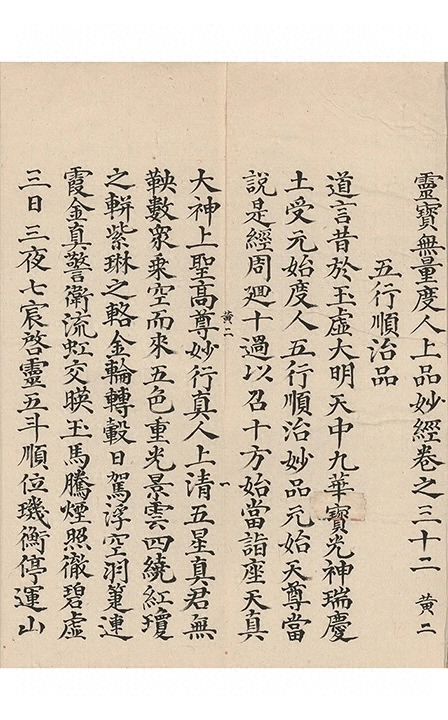 靈寶無量度人上品妙經卷之三十二 黃二
五行順治品
道言昔於玉虛大明天中九華寶光神瑞慶
土受元始度人五行順治妙品元始天尊當
說是經周廻十過以召十方始當詣座天真
黃二 一
大神上聖高尊妙行真人上清五星真君無
鞅數衆乘空而來五色重光景雲四繞紅瓊
之軿紫琳之輅金輪轉轂日駕浮空羽蓋連
霞金真警衛流虹交暎玉馬騰煙照徹碧虛
三日三夜七宸啓靈五斗順位璣衡停運山